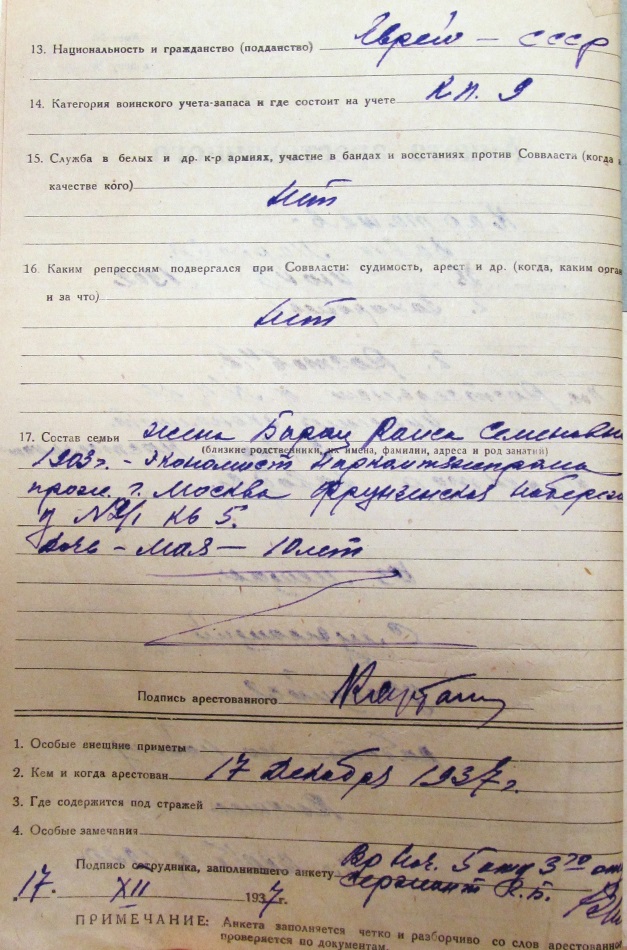 13. Национальность и гражданство (подданство) Еврей — СССР
14. Категория воинского учета-запаса и где состоит на учете К П. 9
15. Служба в белых и др. к-р армиях, участие в бандах и восстаниях против Соввласти (когда и
качестве кого) Нет
16. Каким репрессиям подвергался при Соввласти: судимость, арест и др. (когда, каким орган
и за что) Нет
17. Состав семьи жена Барац Раиса Семеновна
(близкие родственники, их имена, фамилии, адреса и род занятий)
1903 г. - Экономист
прож. г. Москва Фрунзенская набереж
д № 2/1 кв 5.
дочь - Мая — 10 лет
Подпись арестованного
1. Особые внешние приметы
2. Кем и когда арестован 17 Декабря 1937 г.
3. Где содержится под стражей
4. Особые замечания
Подпись сотрудника, заполнившего анкету Вр нач. 5 отд 3го от
Сержант Г.Б.
„17. XII 1937 г.
ПРИМЕЧАНИЕ: Анкета заполняется четко и разборчиво со слов арестованного
проверяется по документам.